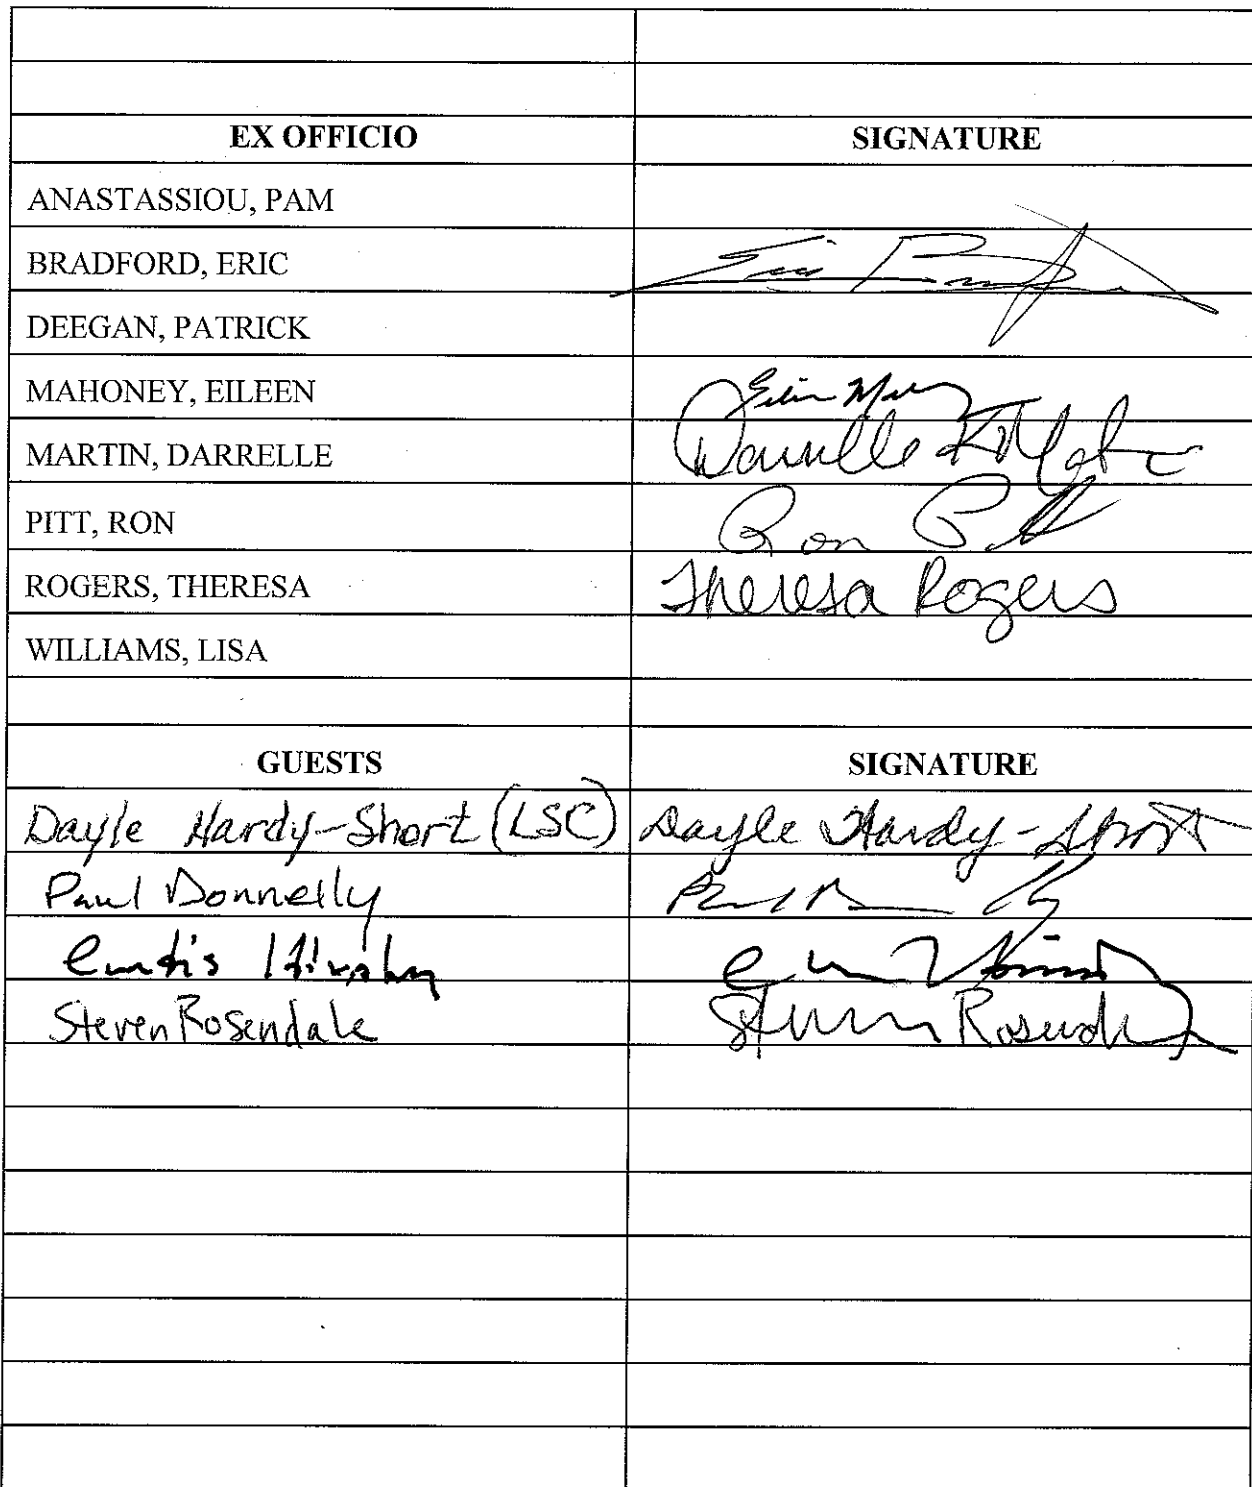 EX OFFICIO SIGNATURE
ANASTASSIOU, PAM
BRADFORD, ERIC Eric
DEEGAN, PATRICK
MAHONEY, EILEEN
MARTIN, DARRELLE Darrelle
PITT, RON Ron Pitt
ROGERS, THERESA Theresa Rogers
WILLIAMS, LISA
GUESTS SIGNATURE
Dayle Hardy-Short (LSC) Dayle Hardy-Short
Paul Donnelly
Curtis
Steven Rosendale Steven